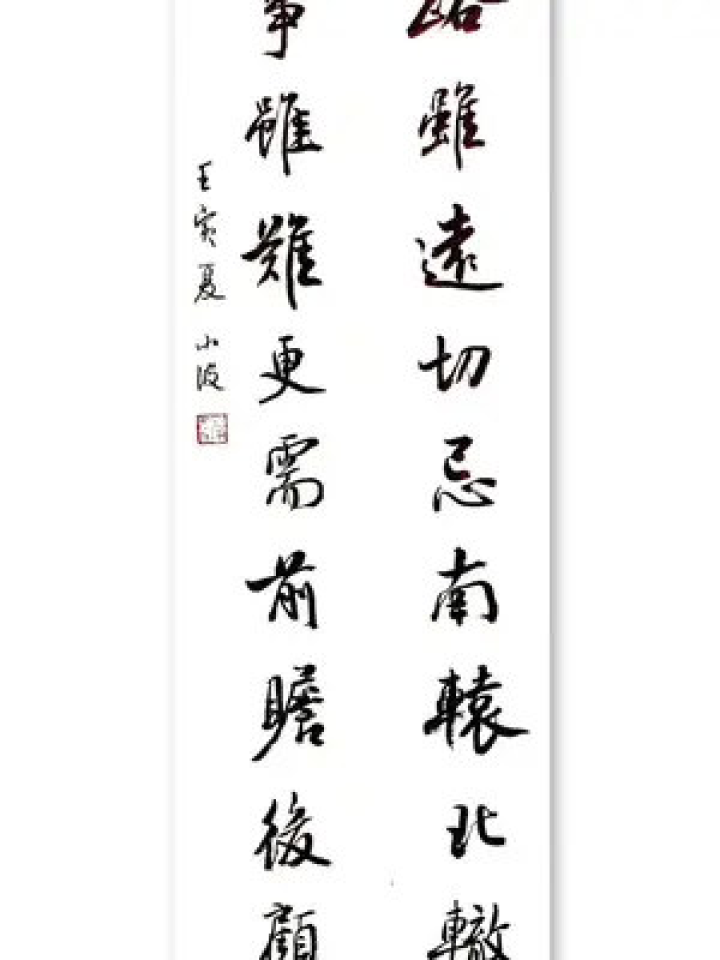 路雖遠切忌南轅北轍
事雖難更需前瞻後顧
壬寅夏 小波